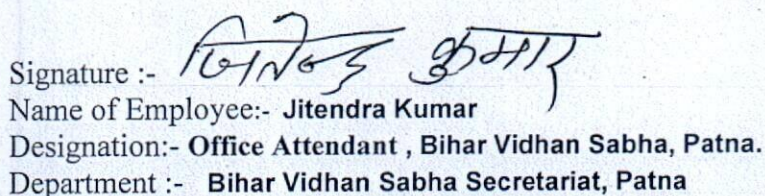 Signature :- जितेन्द्र कुमार
Name of Employee:- Jitendra Kumar
Designation:- Office Attendant , Bihar Vidhan Sabha, Patna.
Department :- Bihar Vidhan Sabha Secretariat, Patna